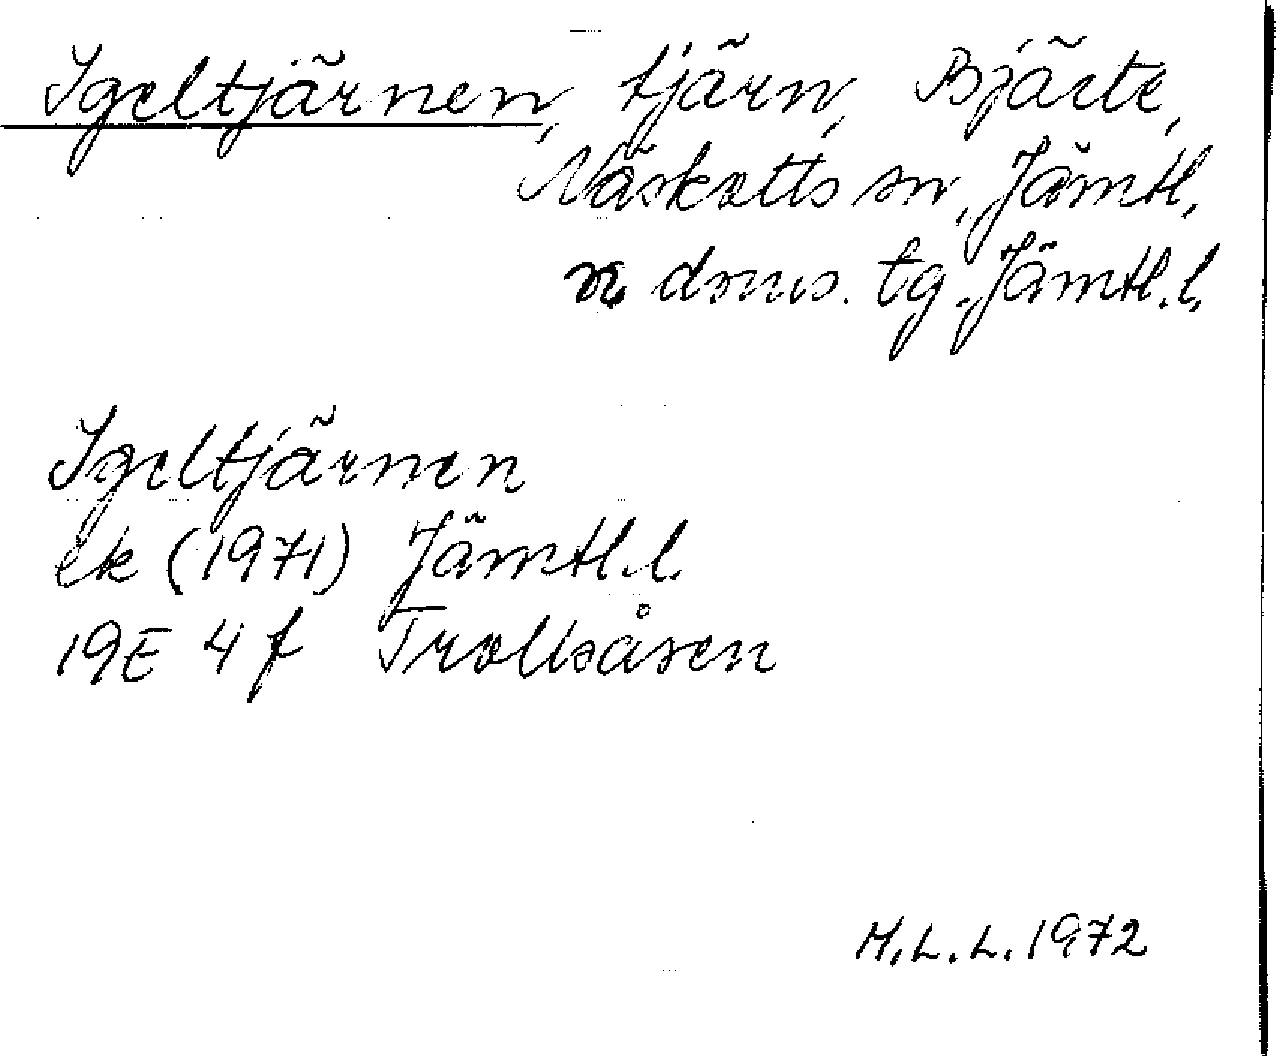 Igeltjärnen, tjärn, Bjärte,
Näskotts sn, Jämtl,
n doms. tg. Jämtl. l.
Igeltjärnen
ek (1971) Jämtl. l.
19E 4 f Trollsåsen
M.L.L. 1972